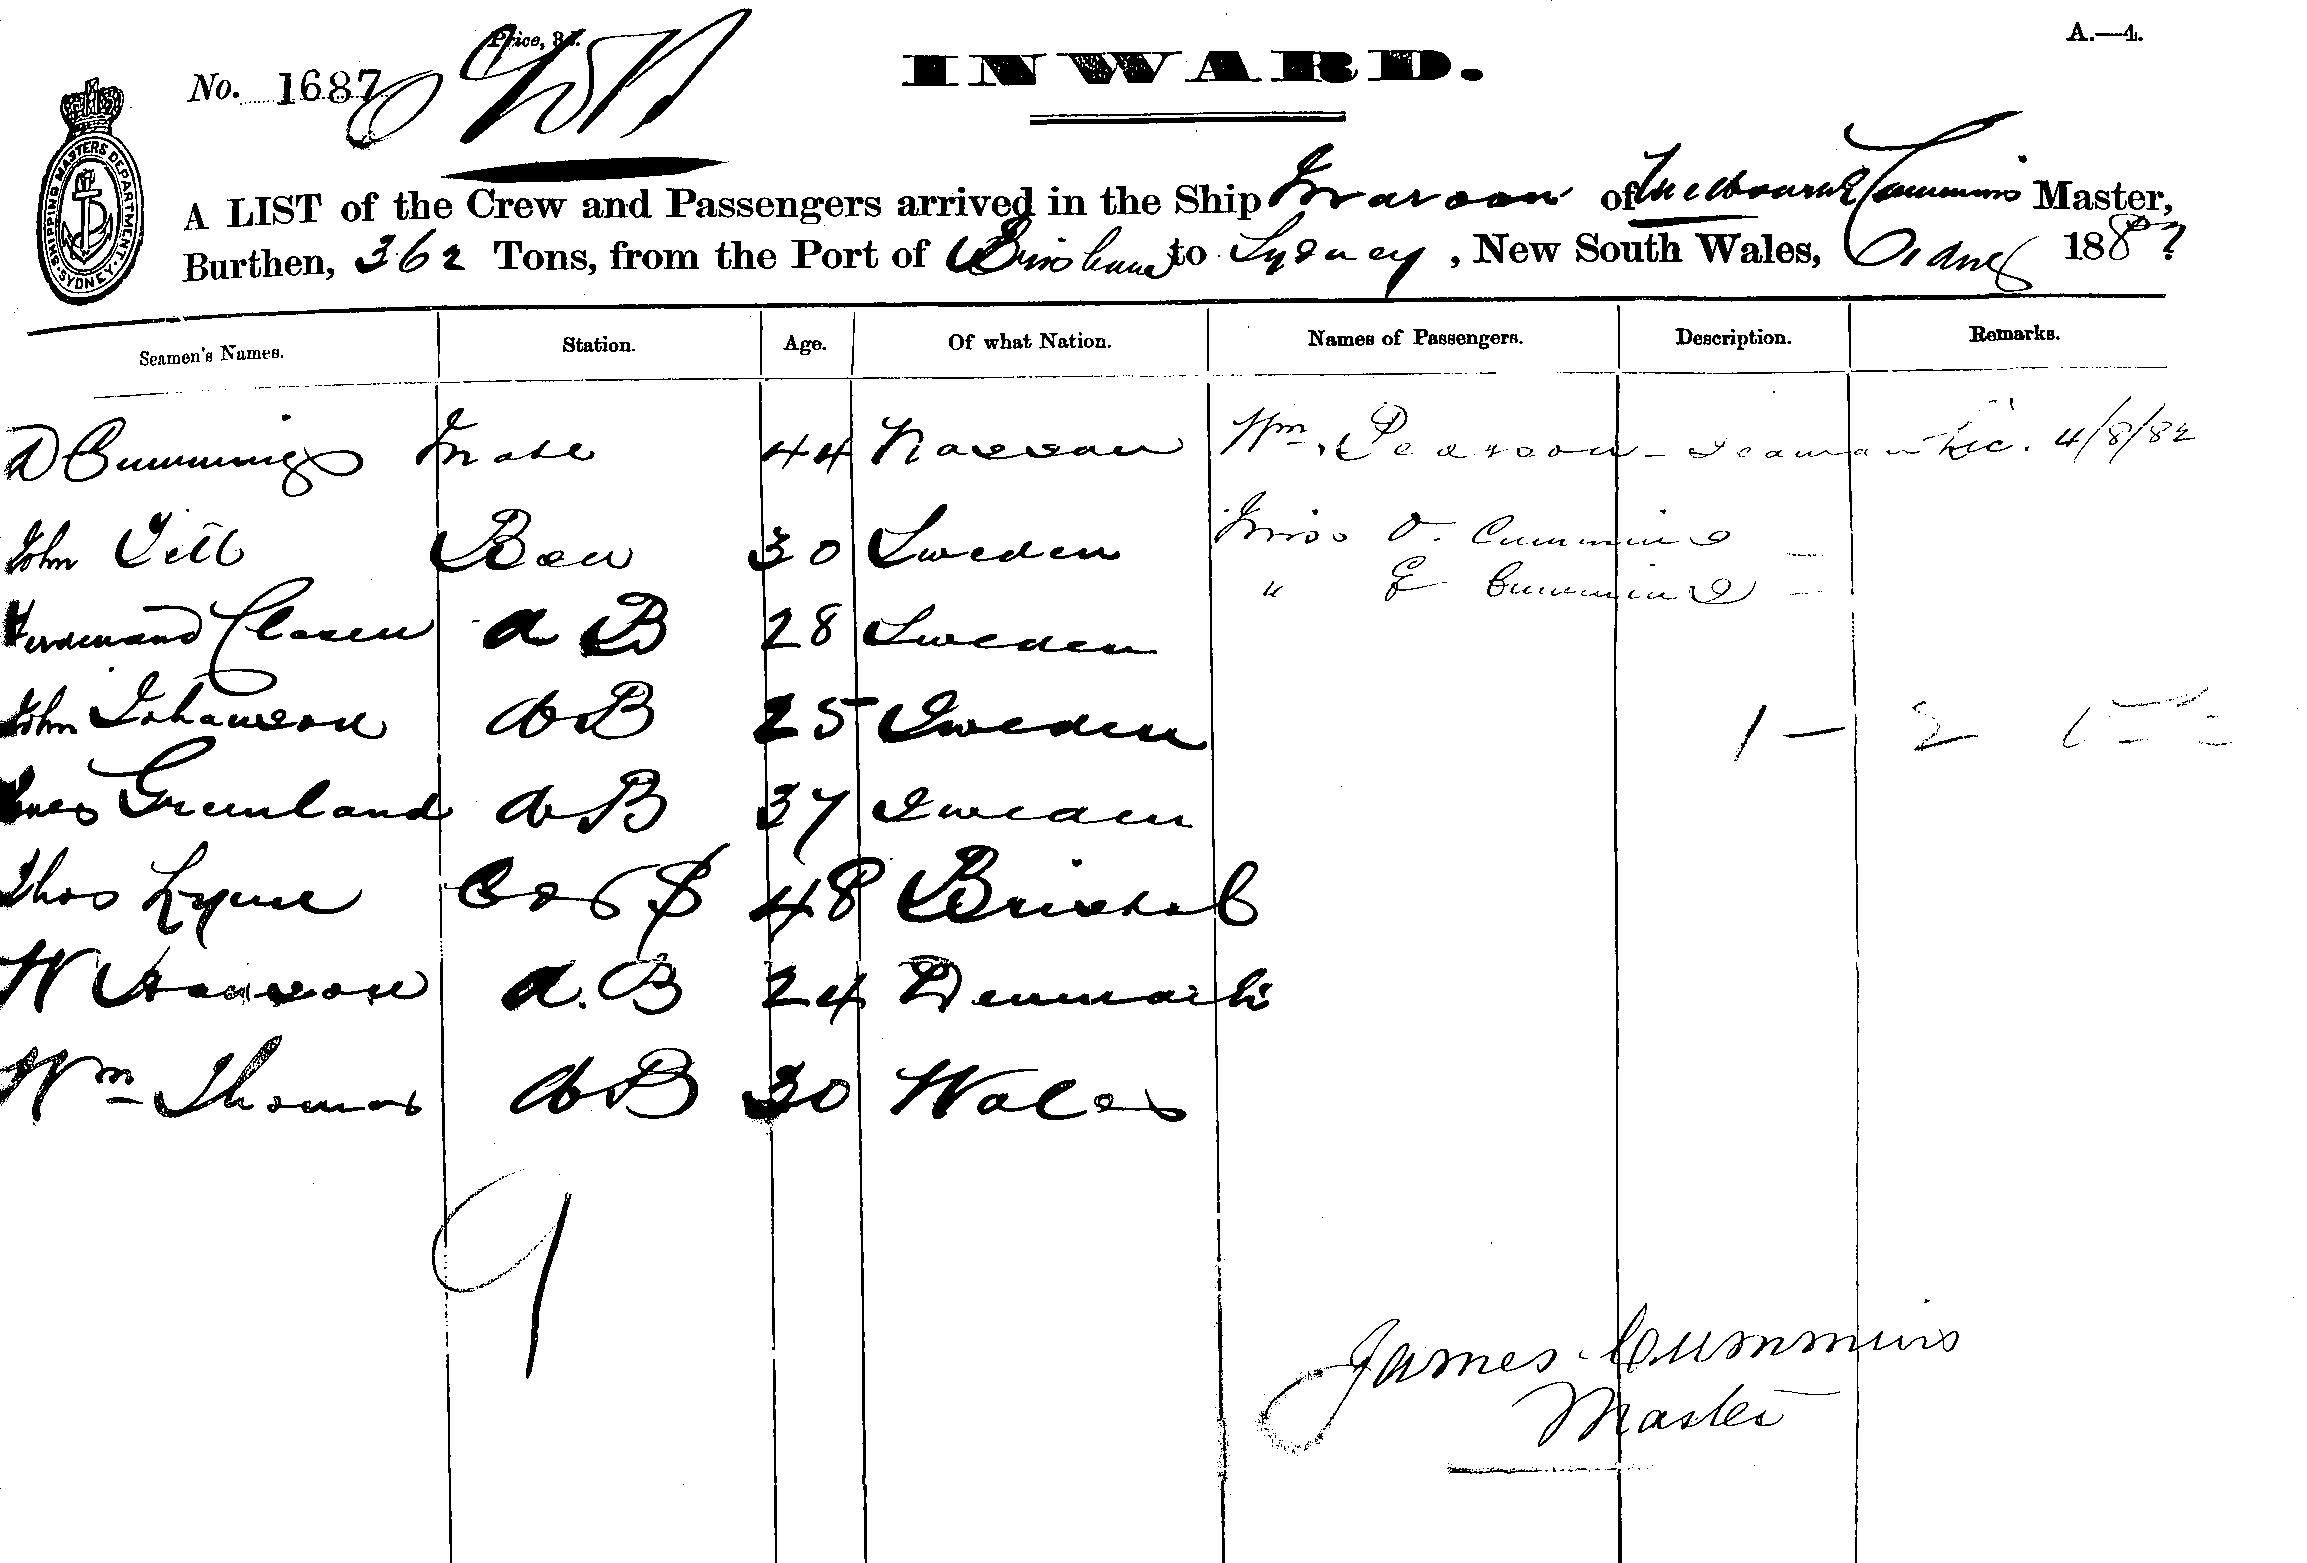 Price, 3d.
A.—4.
No. 1687
INWARD.
SHIPPING MASTERS DEPARTMENT SYDNEY
A LIST of the Crew and Passengers arrived in the Ship Maroon of Melbourne Cummins Master,
Burthen, 362 Tons, from the Port of Brisbane to Sydney, New South Wales, 1882
Seamen's Names. Station. Age. Of what Nation. Names of Passengers. Description. Remarks.
D Cummings Mate 44 Nassau Wm. Pearson - seaman Lic. 4/8/82
John Bsn 30 Sweden Miss O. Cummins —
" E Cummins —
Ferdinand Clasen a B 28 Sweden
John Johansson a B 25 Sweden 1 — 2
Greenland a B 37 Sweden
Thos Lynne 48 Bristol
W Hansson a. B 24 Denmark
Wm Thomas a B 30 Wales
9
James Cummins
Master